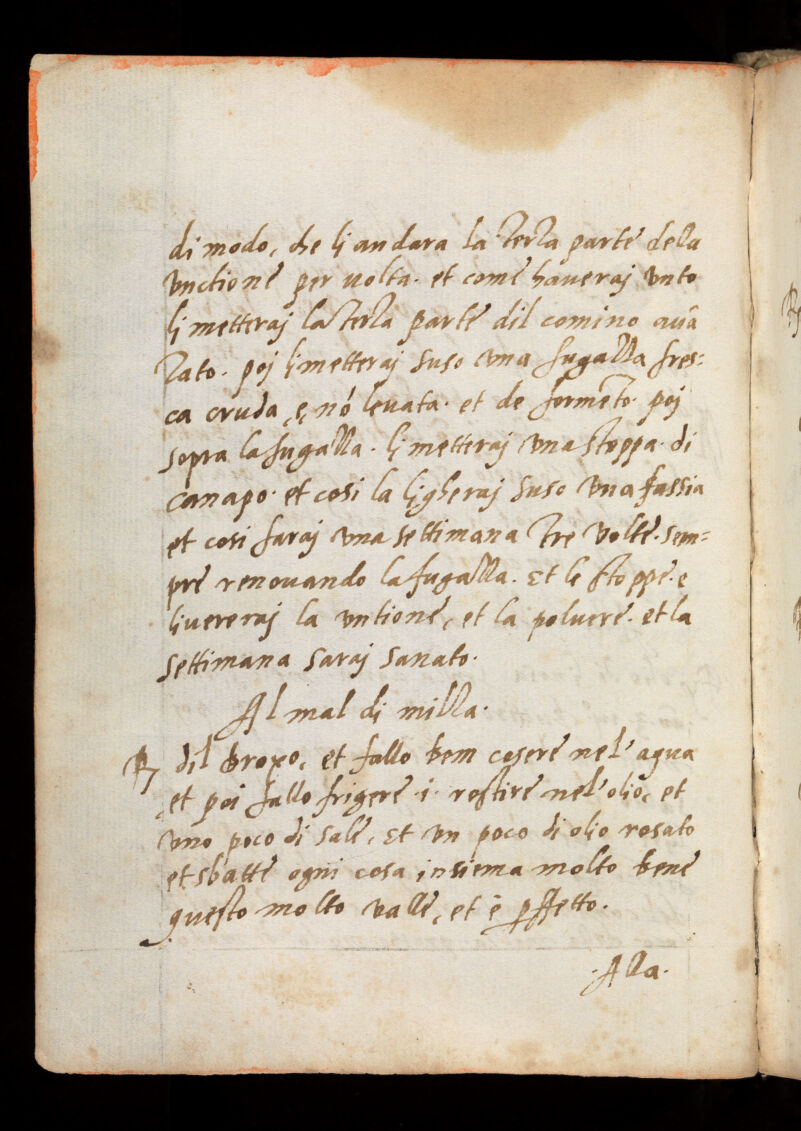 di modo, che li andara la terza parte della
vnctione per uolta. et come haueraj vnto
li metteraj la terza parte dil comino auā
zato. poj li metteraj suso vna fugazza fres=
ca cruda, e, nó leuata. et de formēto. poj
sopra la fugazza. li metteraj vna stoppa. di
canapo. et cosi la ligheraj suso vna fassia
et cosi faraj vna settimana tre volte. sem=
pre renouando la fugazza. Et le stoppe. e
liuereraj la vntione, et la poluere. et la
settimana saraj sanato.
Al mal di milza.
℞ dil broxo, et fallo bem cosere nel' agua
et poi fallo frigere .i. rostire nel' olio, et
vno poco di sale, Et vn poco di olio rosato
et sbatte ogni cosa insiema molto bene
questo molto valle, et è pffetto.
.Alla.